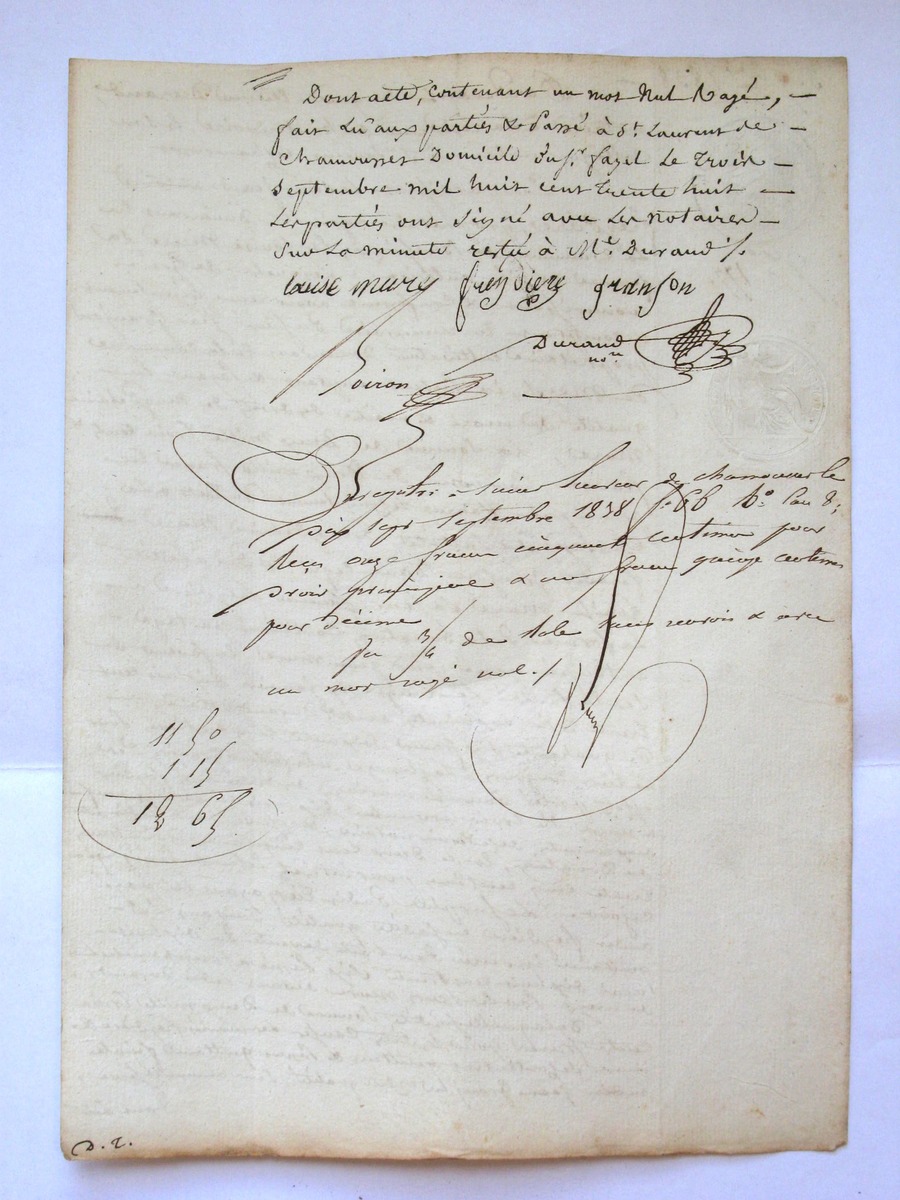 Dont acte, contenant un mot Nul Rayé, —
fait Lu aux parties & Passé à St. Laurent de —
Chamousset Domicile du Sr. fayel Le Trois —
Septembre mil huit cent Trente huit —
Les parties ont Signé avec Les Notaires —
Sur La minute restée à Me. Durand /.
Louise mury freydiere franson
Durand
nore.
Boiron
Enregistré à Saint Laurent de chamousset le
Dix sept Septembre 1838 fo. 66 Vo. Cas 8;
Reçu onze francs cinquante centimes pour
Droit principal & un franc quinze centimes
pour décime
un mot rayé nul. /
11 50
1 15
12 65
D. L.